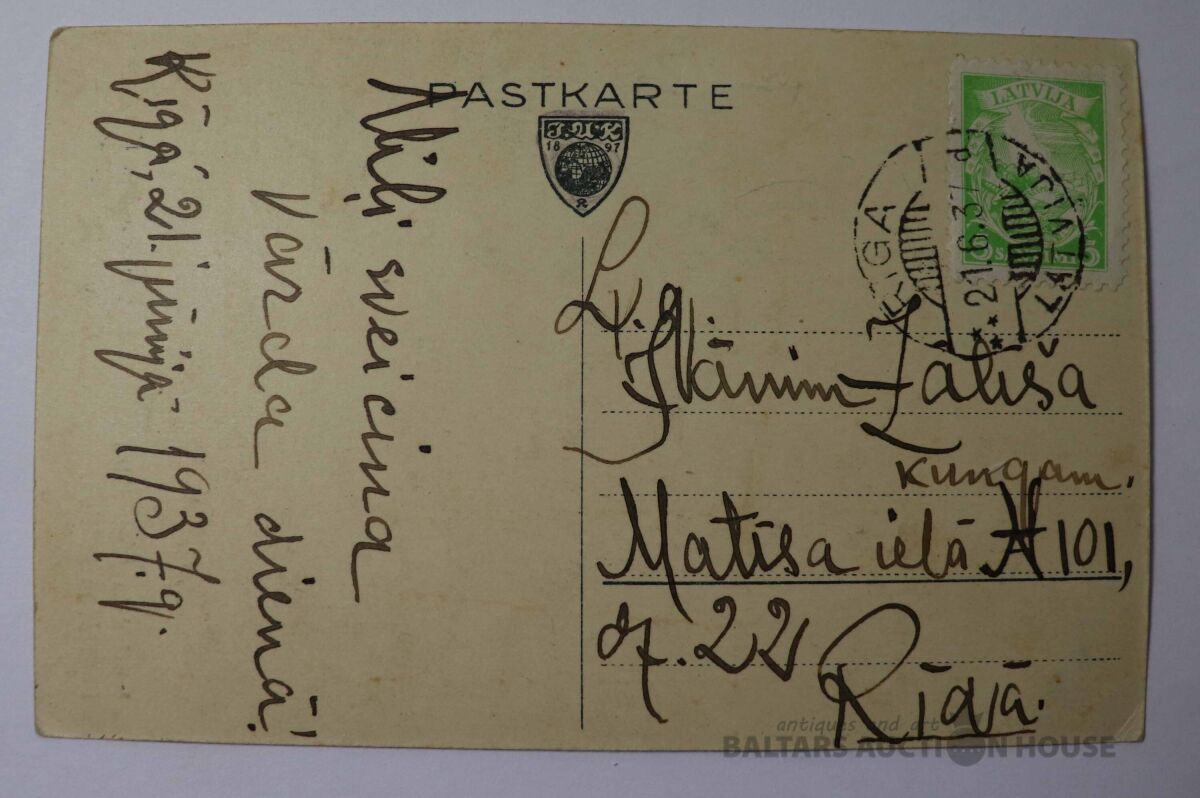 PASTKARTE
J.U.K
18 97
R
LATVIJA
5 5
RIGA LATVIJA
21.6.37
Mīļi sveicina
Vārda dienā!
Rīgā, 21. jūnijā 1937.g.
Zaļiša
kungam.
Matīsa ielā № 101,
dz. 22
Rīgā.
antiques and art
BALTARS AUCTION HOUSE